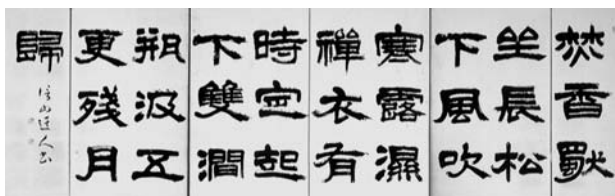 焚香默
坐長松
下風吹
寒露濕
禪衣有
時定起
下雙澗
朔汲五
更殘月
歸